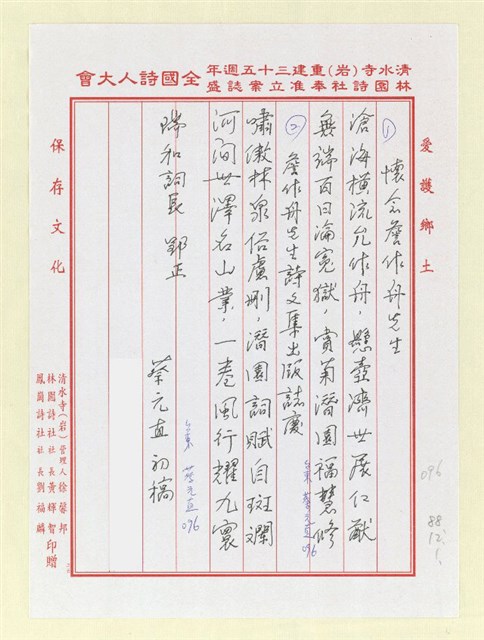 清水寺(岩)重建三十五週年
林園詩社奉准立案誌盛
全國詩人大會
愛護鄉土
① 懷念詹作舟先生
滄海橫流允作舟，懸壺濟世展仁猷
無端百日淪冤獄，賞菊潛園福慧修
② 詹作舟先生詩文集出版誌慶
臺東 蔡元直 096
嘯傲林泉俗慮刪，潛園詞賦自斑斕
河澗世澤名山業，一卷風行耀九寰
瑞和詞長 郢正
蔡元直 初稿
臺東 蔡元直 096
保存文化
清水寺(岩)管理人徐馨邦
林園詩社社長黃輝智
鳳崗詩社社長劉福麟
印贈
096
88
12.
1.